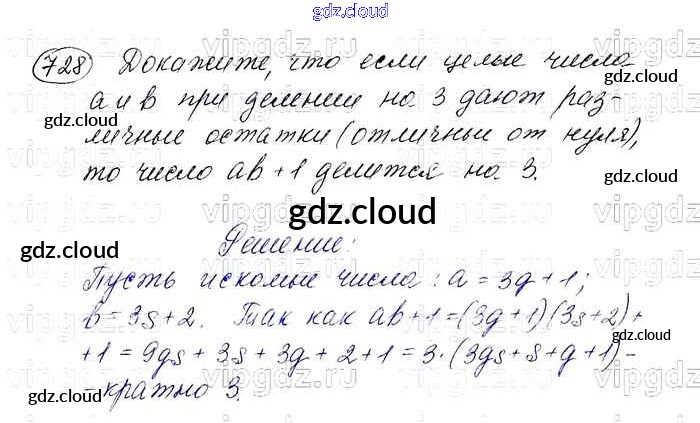 gdz.cloud
728 Докажите, что если целые числа
gdz.cloud
а и в при делении на 3 дают раз-
gdz.cloud
личные остатки (отличные от нуля),
то число ав+1 делится на 3.
gdz.cloud
gdz.cloud
gdz.cloud
Решение:
gdz.cloud
Пусть искомые числа: a = 3g+1;
b = 3s+2. Так как ab+1 = (3g+1)(3s+2)+
+1 = 9gs + 3s + 3g + 2+1 = 3·(3gs+s+g+1) -
- кратно 3.
gdz.cloud
gdz.cloud